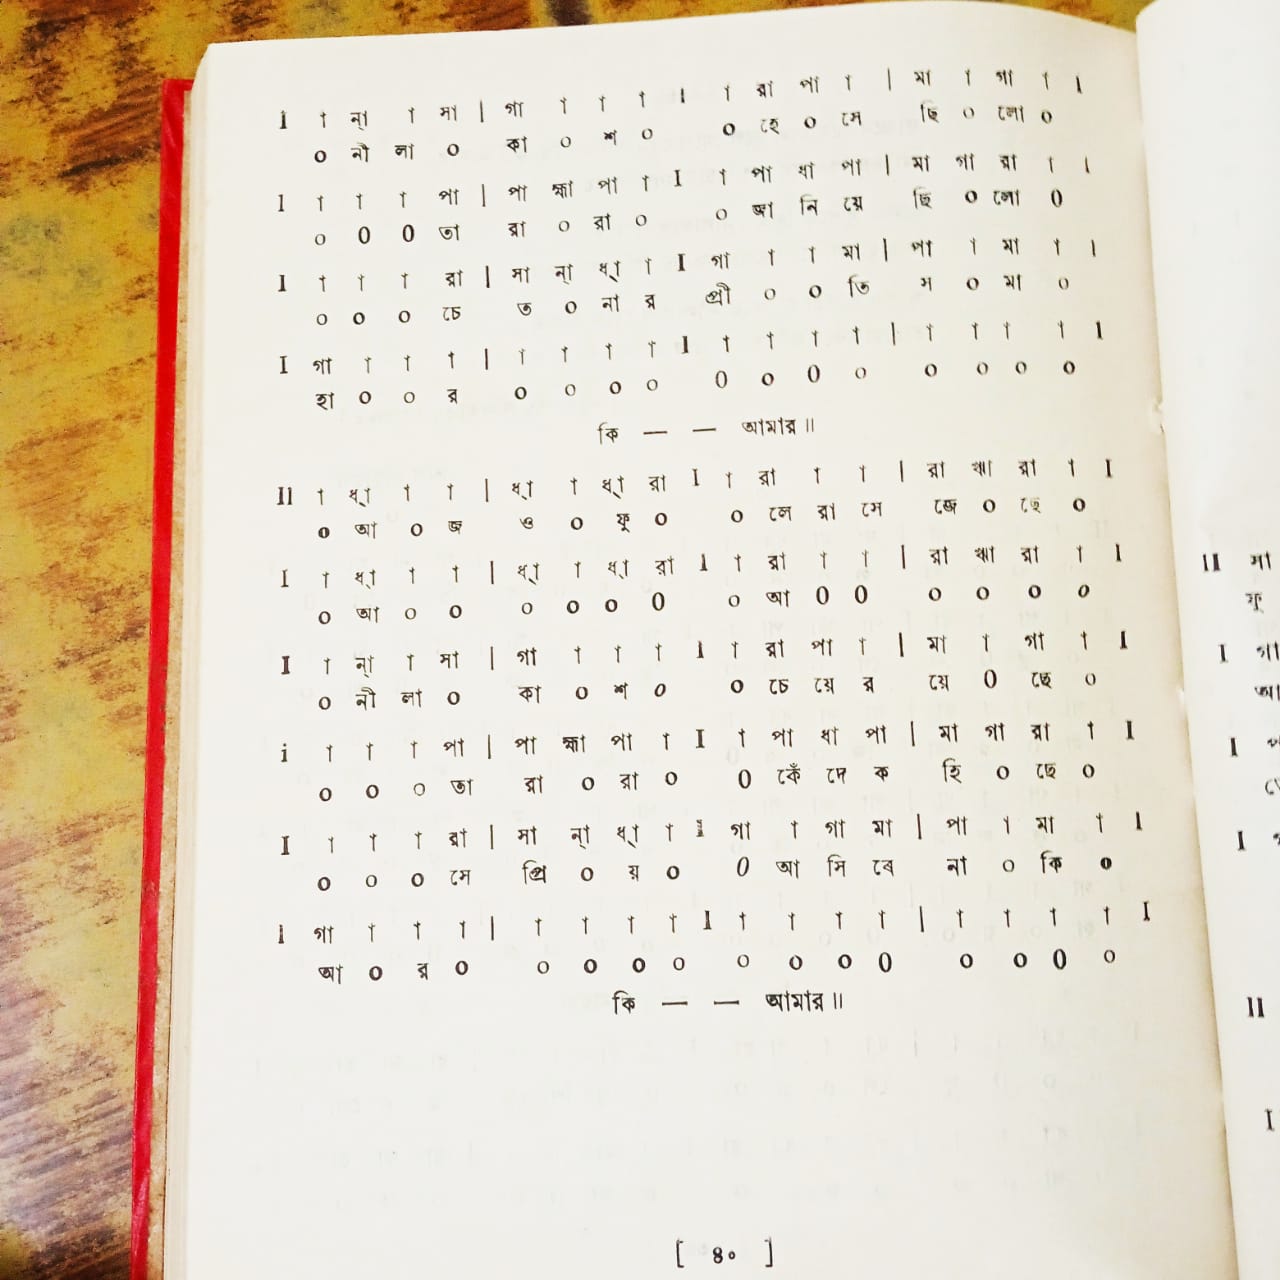 I া ন্া া সা | গা া া া I া রা পা া | মা া গা া I
০ নী লা ০ কা ০ শ ০ ০ হে ০ সে ছি ০ লো ০
I া া া পা | পা হ্মা পা া I া পা ধা পা | মা গা রা া I
০ ০ ০ তা রা ০ রা ০ ০ জা নি য়ে ছি ০ লো ০
I া া া রা | সা ন্া ধ্া া I গা া া মা | পা া মা া I
০ ০ ০ চে ত ০ না র প্রী ০ ০ তি স ০ মা ০
I গা া া া | া া া া I া া া া | া া া া I
হা ০ ০ র ০ ০ ০ ০ ০ ০ ০ ০ ০ ০ ০ ০
কি — — আমার॥
II া ধ্া া া | ধ্া া ধ্া রা I া রা া া | রা ঋা রা া I
০ আ ০ জ ও ০ ফু ০ ০ লে রা সে জে ০ ছে ০
I া ধ্া া া | ধ্া া ধ্া রা I া রা া া | রা ঋা রা া I
০ আ ০ ০ ০ ০ ০ ০ ০ আ ০ ০ ০ ০ ০ ০
I া ন্া া সা | গা া া া I া রা পা া | মা া গা া I
০ নী লা ০ কা ০ শ ০ ০ চে য়ে র য়ে ০ ছে ০
I া া া পা | পা হ্মা পা া I া পা ধা পা | মা গা রা া I
০ ০ ০ তা রা ০ রা ০ ০ কেঁ দে ক হি ০ ছে ০
I া া া রা | সা ন্া ধ্া া I গা া গা মা | পা া মা া I
০ ০ ০ সে প্রি ০ য় ০ ০ আ সি বে না ০ কি ০
I গা া া া | া া া া I া া া া | া া া া I
আ ০ র ০ ০ ০ ০ ০ ০ ০ ০ ০ ০ ০ ০ ০
কি — — আমার॥
[ ৪০ ]
II মা
ফু
I গা
আ
I
I
II
I